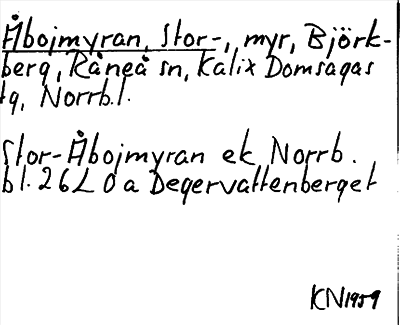 Åbojmyran, Stor-, myr, Björk-
berg, Råneå sn, Kalix Domsagas
tg, Norrb.l.
Stor-Åbojmyran ek Norrb.
bl. 26L 0a Degervattenberget
KN1959